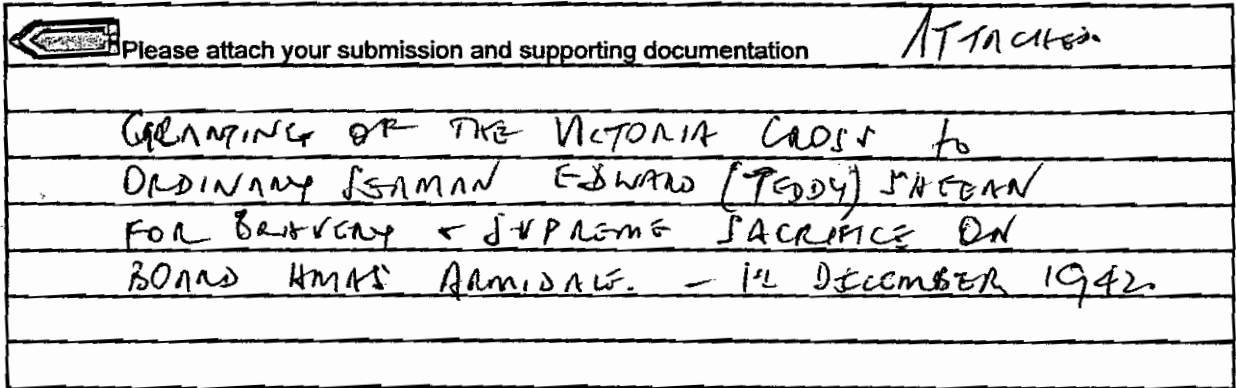 Please attach your submission and supporting documentation ATTACHED.
GRANTING OF THE VICTORIA CROSS to
ORDINARY SEAMAN EDWARD (TEDDY) SHEEAN
FOR BRAVERY & SUPREME SACRIFICE ON
BOARD HMAS ARMIDALE. - 1st DECEMBER 1942.